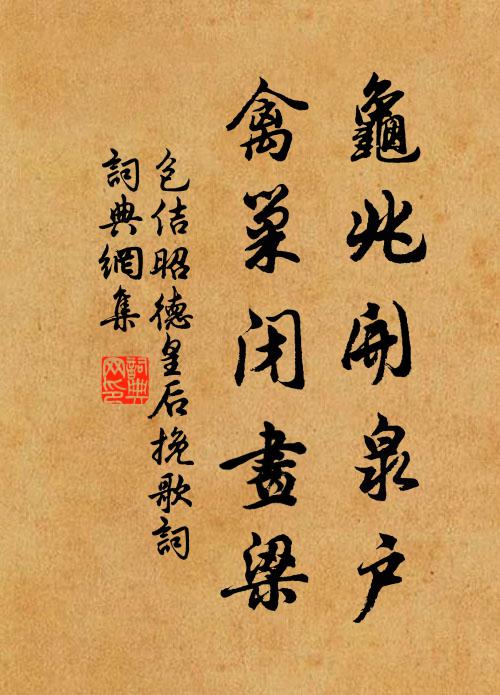 龜兆開泉戶
禽巢閉畫梁
包佶昭德皇后挽歌詞
詞典網集
詞典
網印